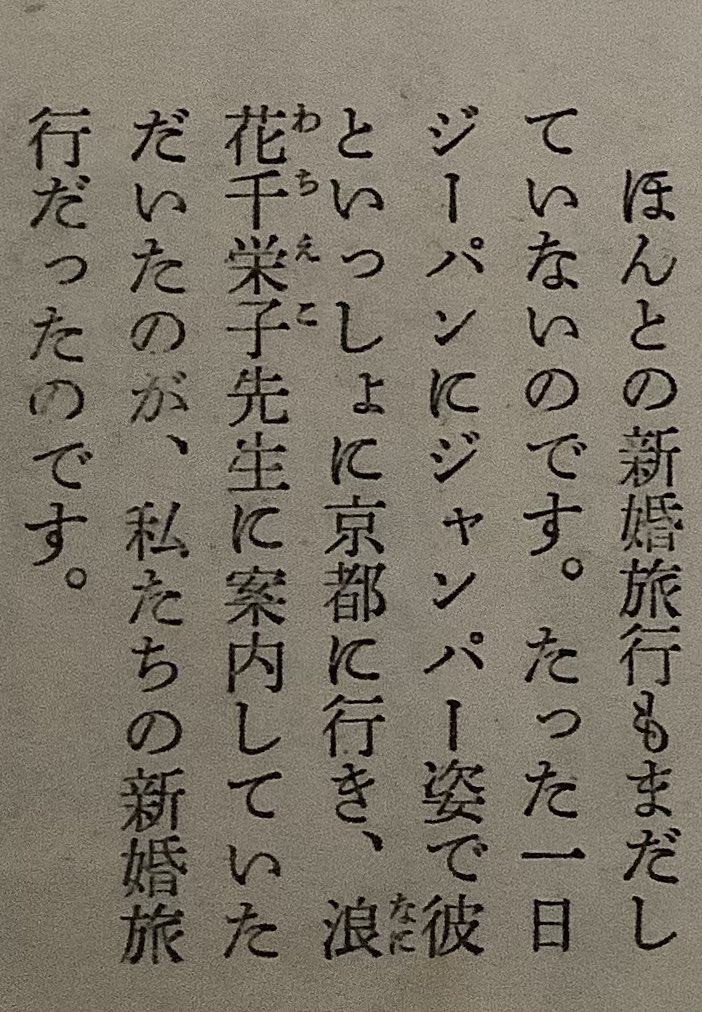 ほんとの新婚旅行もまだし
ていないのです。たった一日
ジーパンにジャンパー姿で彼
といっしょに京都に行き、浪
花千栄子先生に案内していた
だいたのが、私たちの新婚旅
行だったのです。
なに
わちえこ